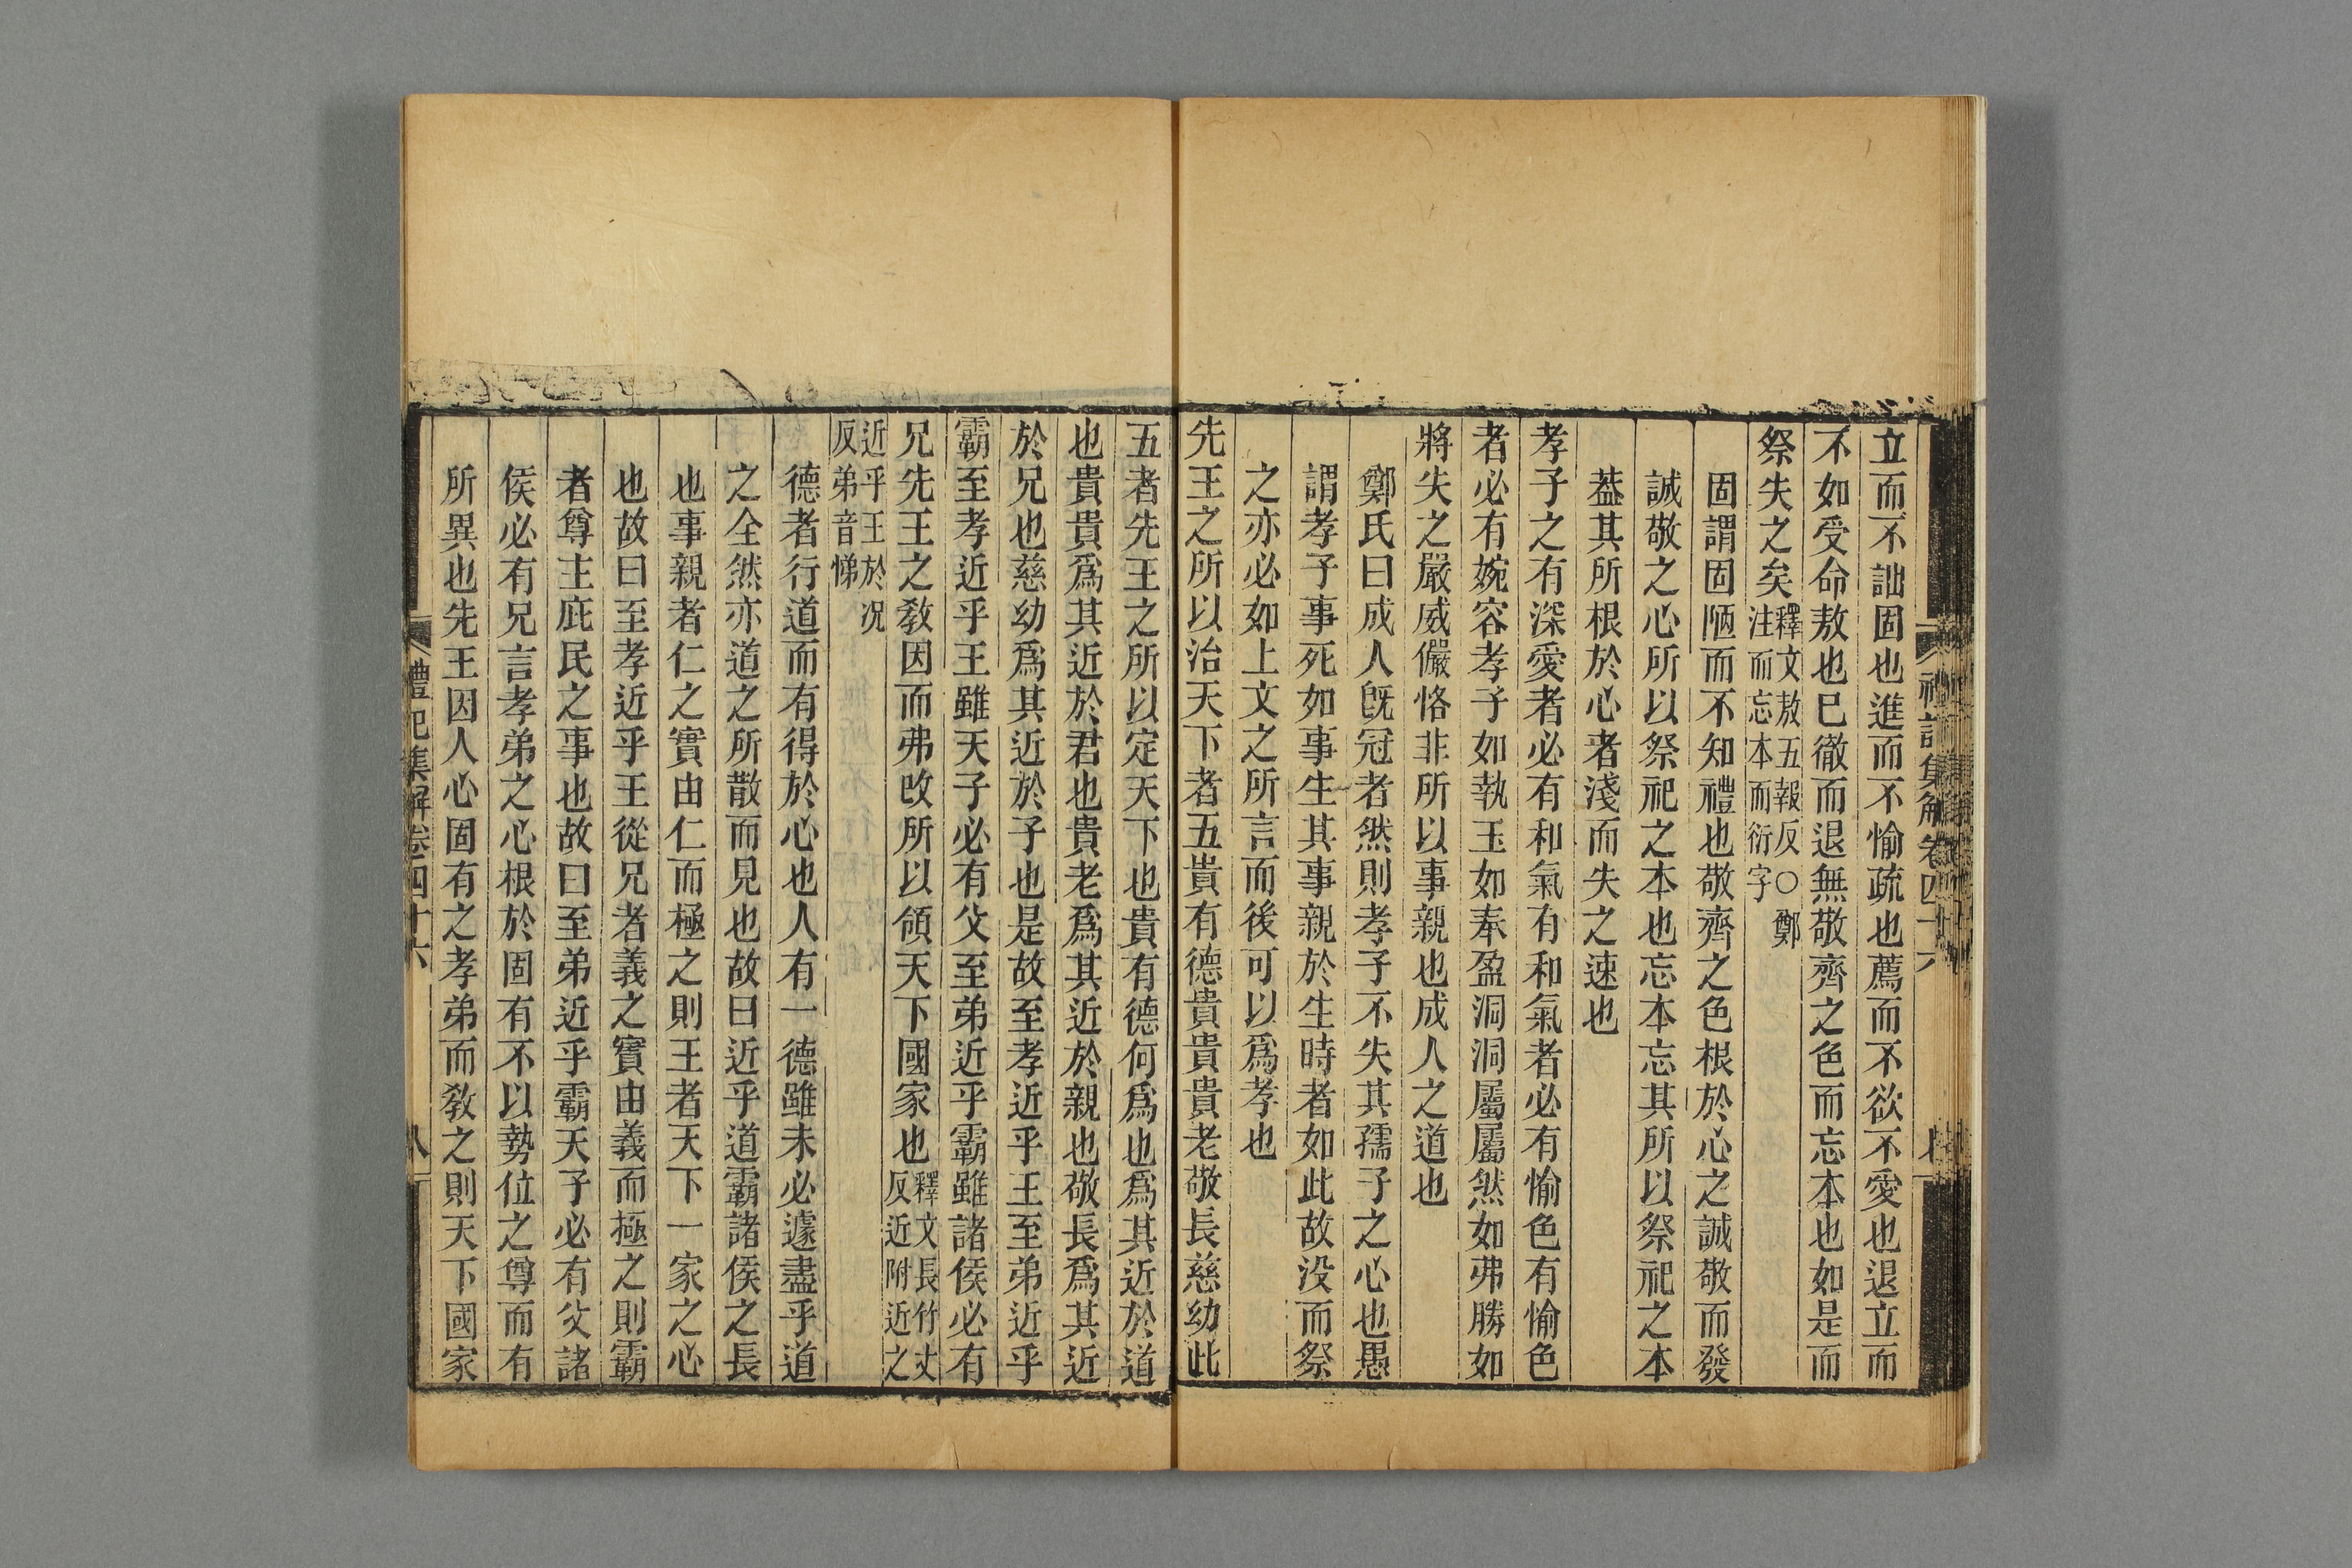 立而不詘固也進而不愉疏也薦而不欲不愛也退立而
不如受命敖也已徹而退無敬齊之色而忘本也如是而
祭失之矣釋文敖五報反○鄭
注而忘本而衍字
固謂固陋而不知禮也敬齊之色根於心之誠敬而發
誠敬之心所以祭祀之本也忘本忘其所以祭祀之本
葢其所根於心者淺而失之速也
孝子之有深愛者必有和氣有和氣者必有愉色有愉色
者必有婉容孝子如執玉如奉盈洞洞屬屬然如弗勝如
將失之嚴威儼恪非所以事親也成人之道也
鄭氏曰成人旣冠者然則孝子不失其孺子之心也愚
謂孝子事死如事生其事親於生時者如此故没而祭
之亦必如上文之所言而後可以爲孝也
先王之所以治天下者五貴有德貴貴貴老敬長慈幼此
五者先王之所以定天下也貴有德何爲也爲其近於道
也貴貴爲其近於君也貴老爲其近於親也敬長爲其近
於兄也慈幼爲其近於子也是故至孝近乎王至弟近乎
霸至孝近乎王雖天子必有父至弟近乎霸雖諸侯必有
兄先王之敎因而弗改所以領天下國家也釋文長竹丈
反近附近之
近乎王於况
反弟音悌
德者行道而有得於心也人有一德雖未必遽盡乎道
之全然亦道之所散而見也故曰近乎道霸諸侯之長
也事親者仁之實由仁而極之則王者天下一家之心
也故曰至孝近乎王從兄者義之實由義而極之則霸
者尊主庇民之事也故曰至弟近乎霸天子必有父諸
侯必有兄言孝弟之心根於固有不以勢位之尊而有
所異也先王因人心固有之孝弟而敎之則天下國家
禮記集解卷四十六
八